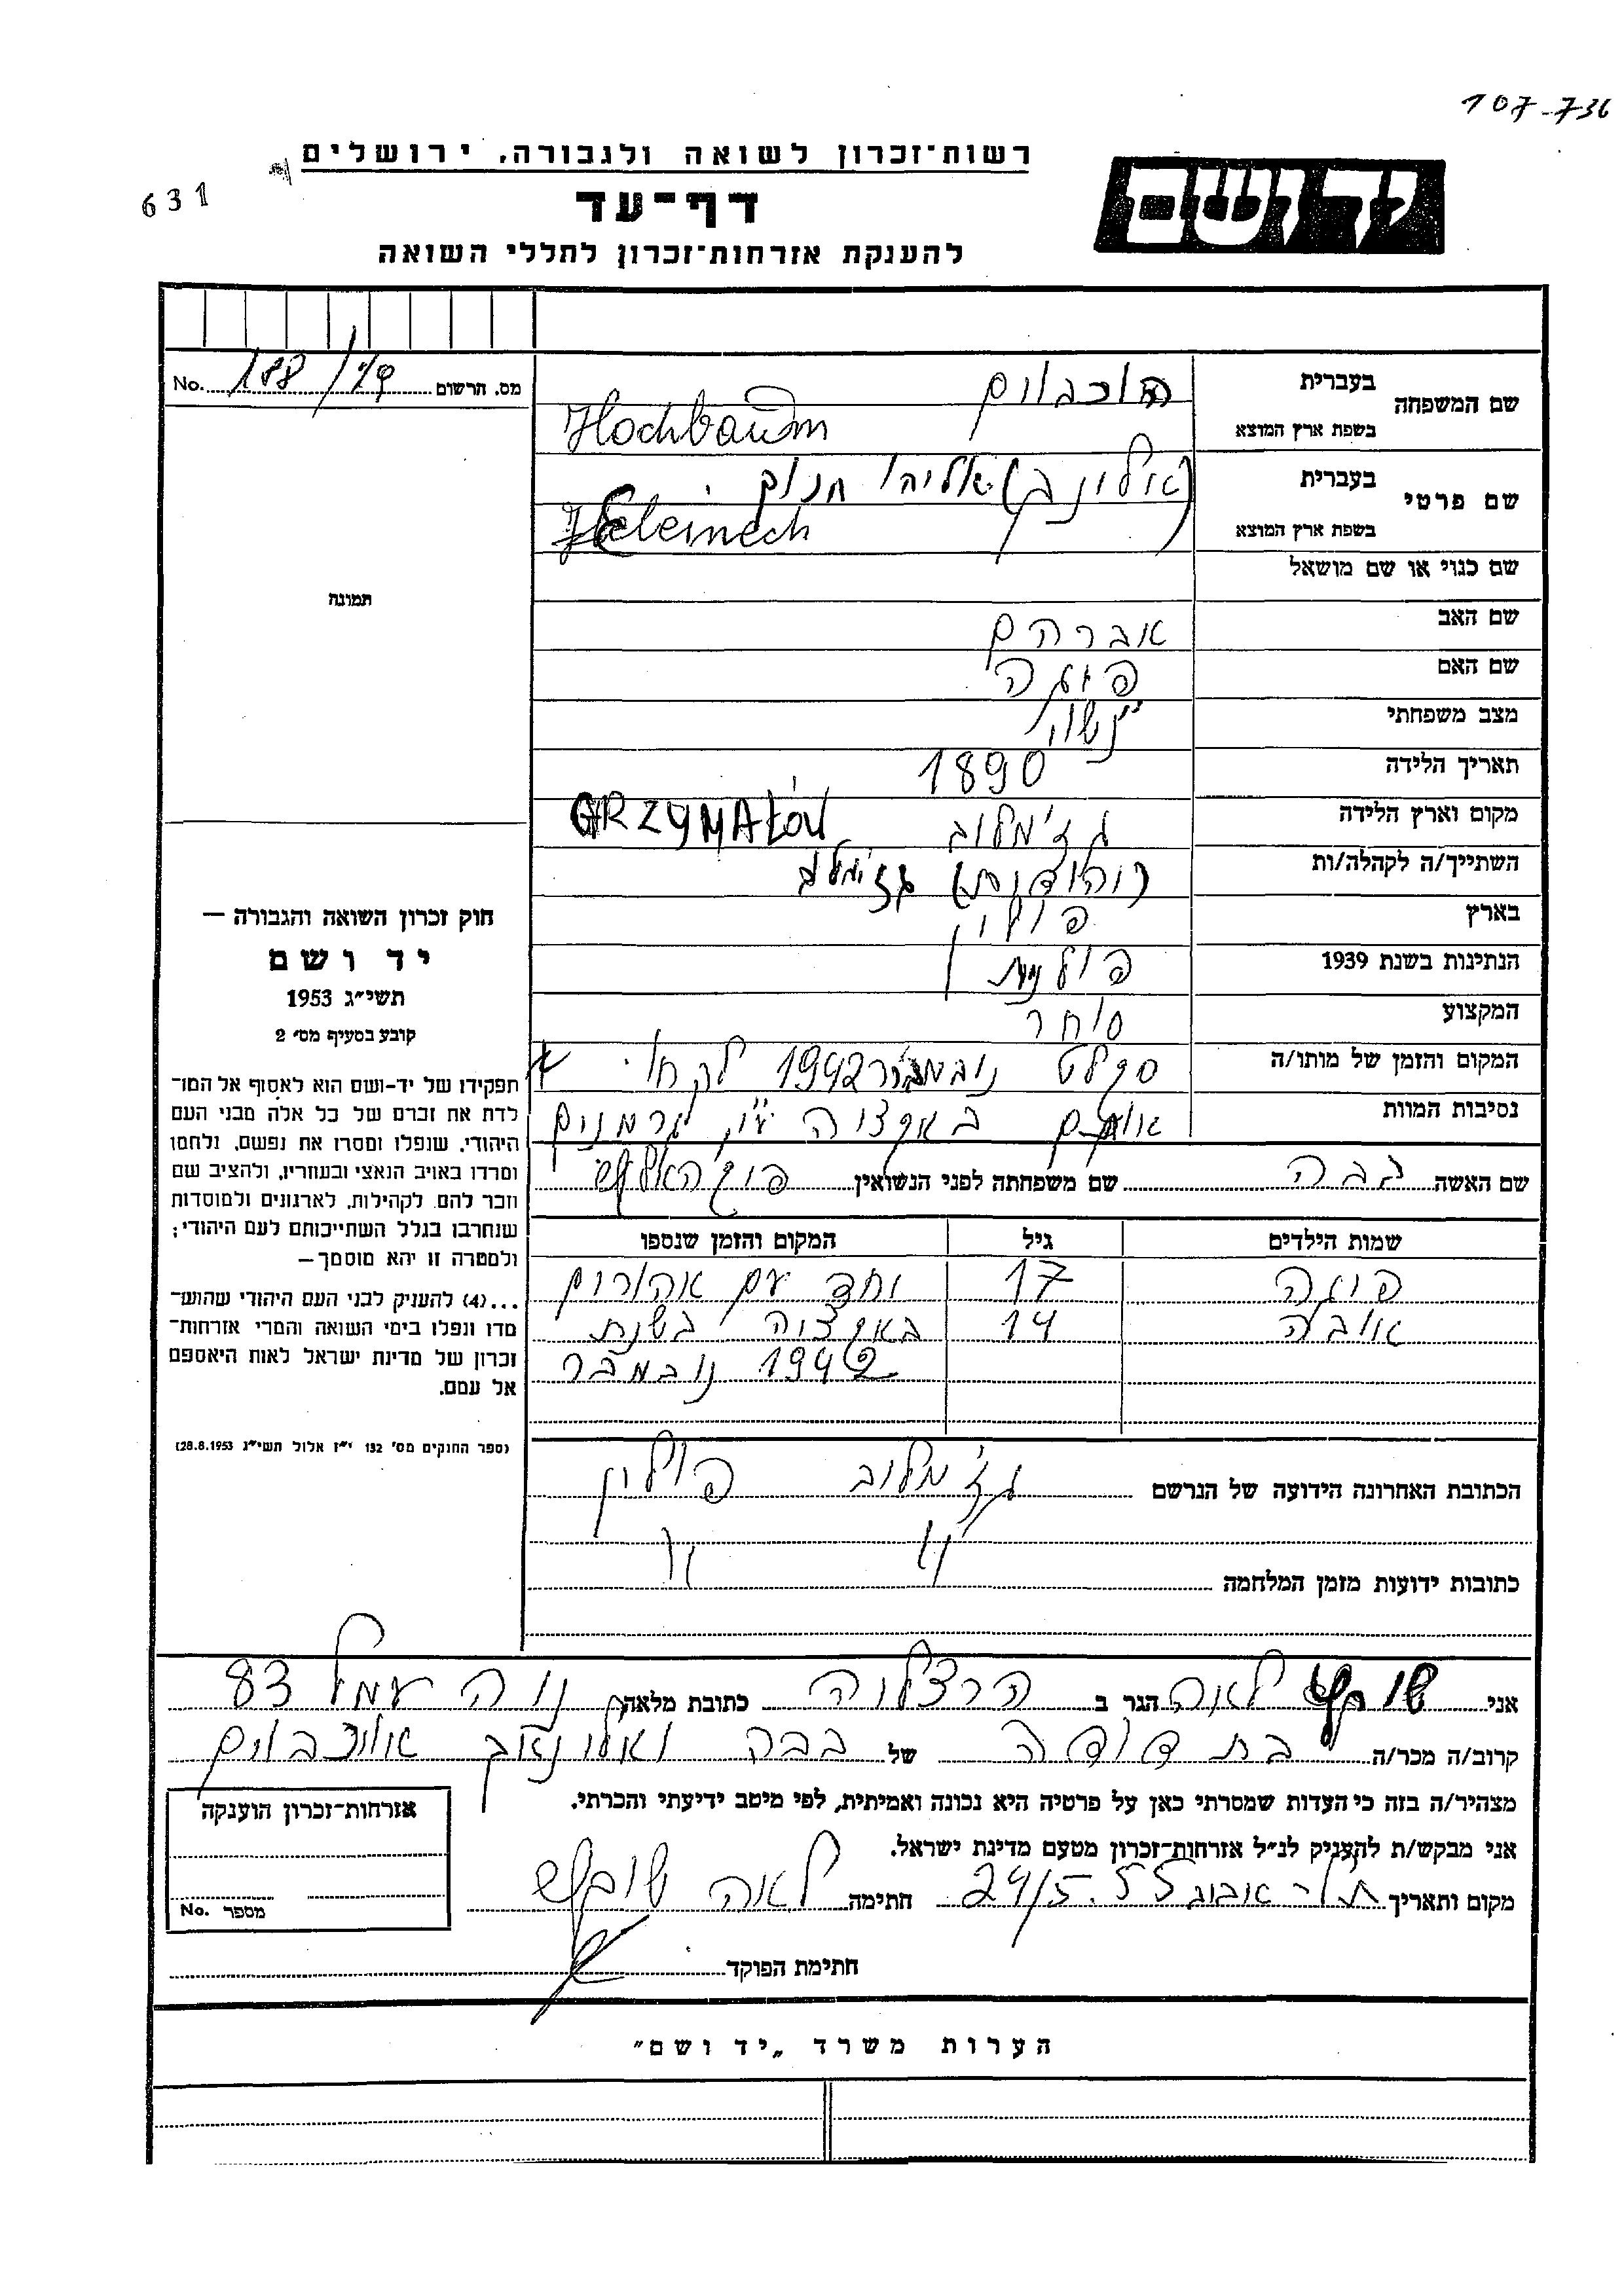 107-736
רשות-זכרון לשואה ולגבורה, ירושלים
631
יד ושם
דף-עד
להענקת אזרחות-זכרון לחללי השואה
מס. הרשום No. 188/
שם המשפחה
בעברית הוכבוים
בשפת ארץ המוצא Hochbaum
שם פרטי
בעברית אליהו חנוך
בשפת ארץ המוצא
שם כנוי או שם מושאל
תמונה
שם האב אברהם
שם האם פויגה
מצב משפחתי נשוי
תאריך הלידה 1890
מקום וארץ הלידה גז'מלוב GRZYMAŁÓW
השתייך/ה לקהלה/ות (יהודית)
בארץ פולין
הנתינות בשנת 1939 פולנית
המקצוע סוחר
המקום והזמן של מותו/ה סקלט נובמבר 1942 לקחו
נסיבות המוות אותם באקציה ע"י גרמנים
שם האשה בבה שם משפחתה לפני הנשואין
שמות הילדים גיל המקום והזמן שנספו
פויגה 17 יחד עם ההורים
14 באקציה בשנת
1942 נובמבר
הכתובת האחרונה הידועה של הנרשם גז'מלוב פולין
כתובות ידועות מזמן המלחמה " "
חוק זכרון השואה והגבורה —
יד ושם
תשי"ג 1953
קובע בסעיף מס' 2
תפקידו של יד-ושם הוא לאסוף אל המו-
לדת את זכרם של כל אלה מבני העם
היהודי, שנפלו ומסרו את נפשם, נלחמו
ומרדו באויב הנאצי ובעוזריו, ולהציב שם
וזכר להם, לקהילות, לארגונים ולמוסדות
שנחרבו בגלל השתייכותם לעם היהודי;
ולמטרה זו יהא מוסמך—
...(4) להעניק לבני העם היהודי שהוש-
מדו ונפלו בימי השואה והמרי אזרחות-
זכרון של מדינת ישראל לאות היאספם
אל עמם.
(ספר החוקים מס' 132 י"ז אלול תשי"ג 28.8.1953)
אני לאה הגר ב הרצליה כתובת מלאה נוה עמל 83
קרוב/ה מכר/ה בת דודה של בבה
מצהיר/ה בזה כי העדות שמסרתי כאן על פרטיה היא נכונה ואמיתית, לפי מיטב ידיעתי והכרתי.
אני מבקש/ת להעניק לנ"ל אזרחות-זכרון מטעם מדינת ישראל.
מקום ותאריך תל-אביב 24/5.55 חתימה לאה
חתימת הפוקד
אזרחות-זכרון הוענקה
מספר No.
הערות משרד „יד ושם"